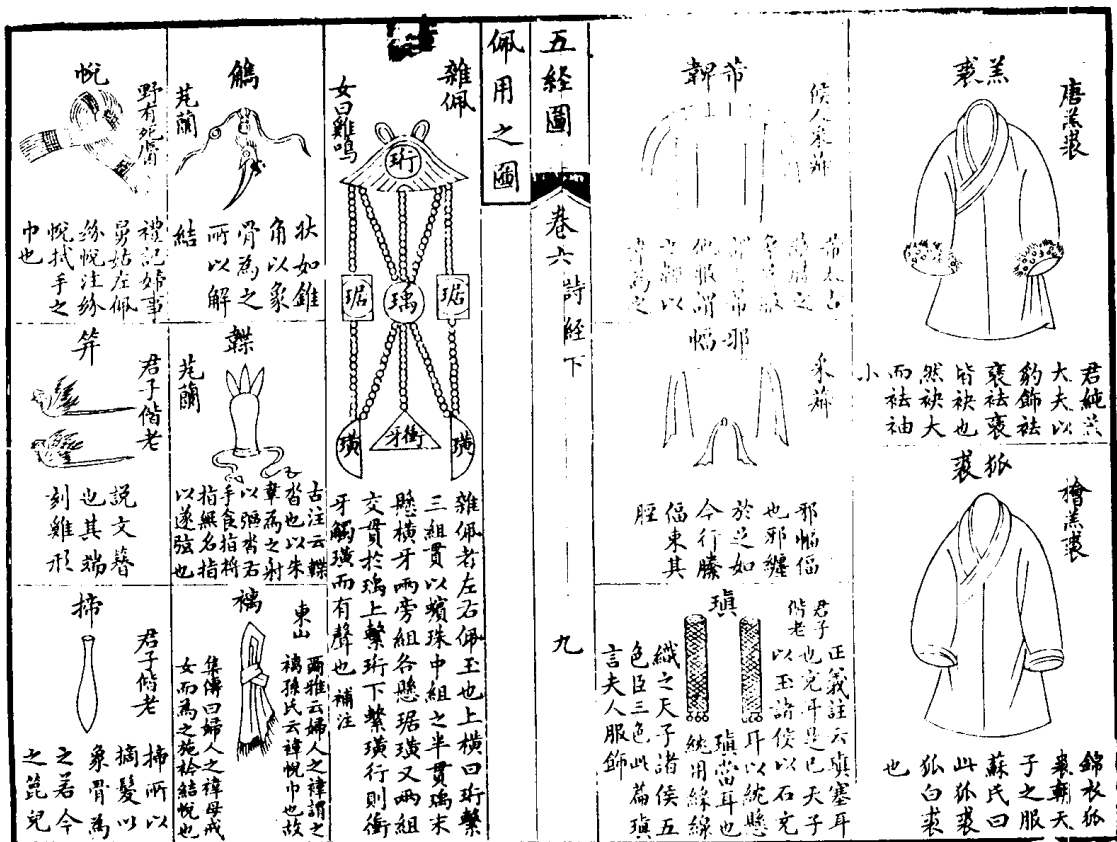 羔裘
唐羔裘
君純羔
大夫以
豹飾袪
褎袪褎
皆袂也
然袂大
而袪袖
小
狐裘
檜羔裘
錦衣狐
裘朝天
子之服
蘇氏曰
此狐裘
狐白裘
也
芾韠
候人采菽
芾太古
蔽膝之
邪幅
采菽
邪幅偪
也邪纏
於足如
今行縢
偪束其
脛
瑱
君子
偕老
正義註云瑱塞耳
也充耳是已天子
以玉諸侯以石充
耳以紞懸
瑱當耳也
紞用綵線
織之天子諸侯五
色臣三色此篇瑱
言夫人服飾
五經圖
卷六
詩經下
九
佩用之圖
雜佩
女曰雞鳴
珩
琚
瑀
琚
璜
衝牙
璜
雜佩者左右佩玉也上橫曰珩繫
三組貫以蠙珠中組之半貫瑀末
懸橫牙兩旁組各懸琚璜又兩組
交貫於瑀上繫珩下繫璜行則衝
牙觸璜而有聲也 補注
觿
芄蘭
狀如錐
角以象
骨為之
所以解
結
韘
芄蘭
古注云韘
沓也以朱
韋為之射
以彄沓右
手食指將
指無名指
以遂弦也
褵
東山
爾雅云婦人之褘謂之
褵孫氏云褘帨巾也故
集傳曰婦人之褘母戒
女而為之施衿結帨也
帨
野有死麕
禮記婦事
舅姑左佩
紛帨注紛
帨拭手之
巾也
笄
君子偕老
説文簪
也其端
刻雞形
揥
君子偕老
揥所以
摘髮以
象骨為
之若今
之篦兒